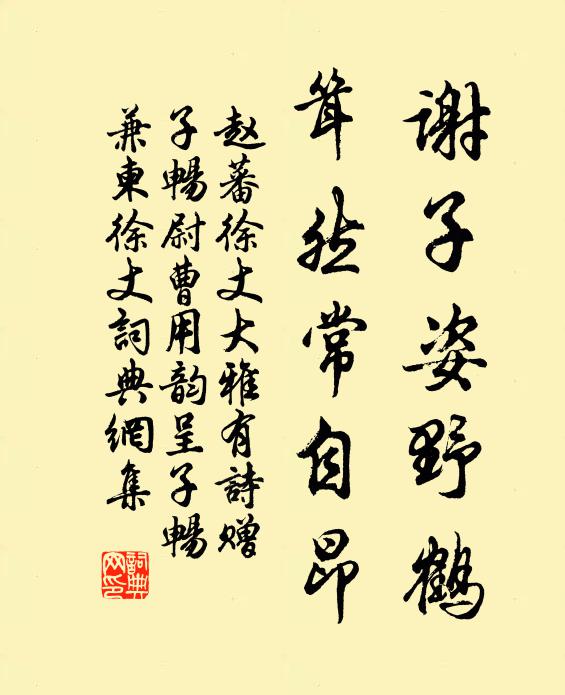 謝子姿野鶴
耸然常自昂
赵蕃徐丈大雅有詩贈
子暢尉曹用韵呈子暢
兼東徐丈詞典網集
詞典网印